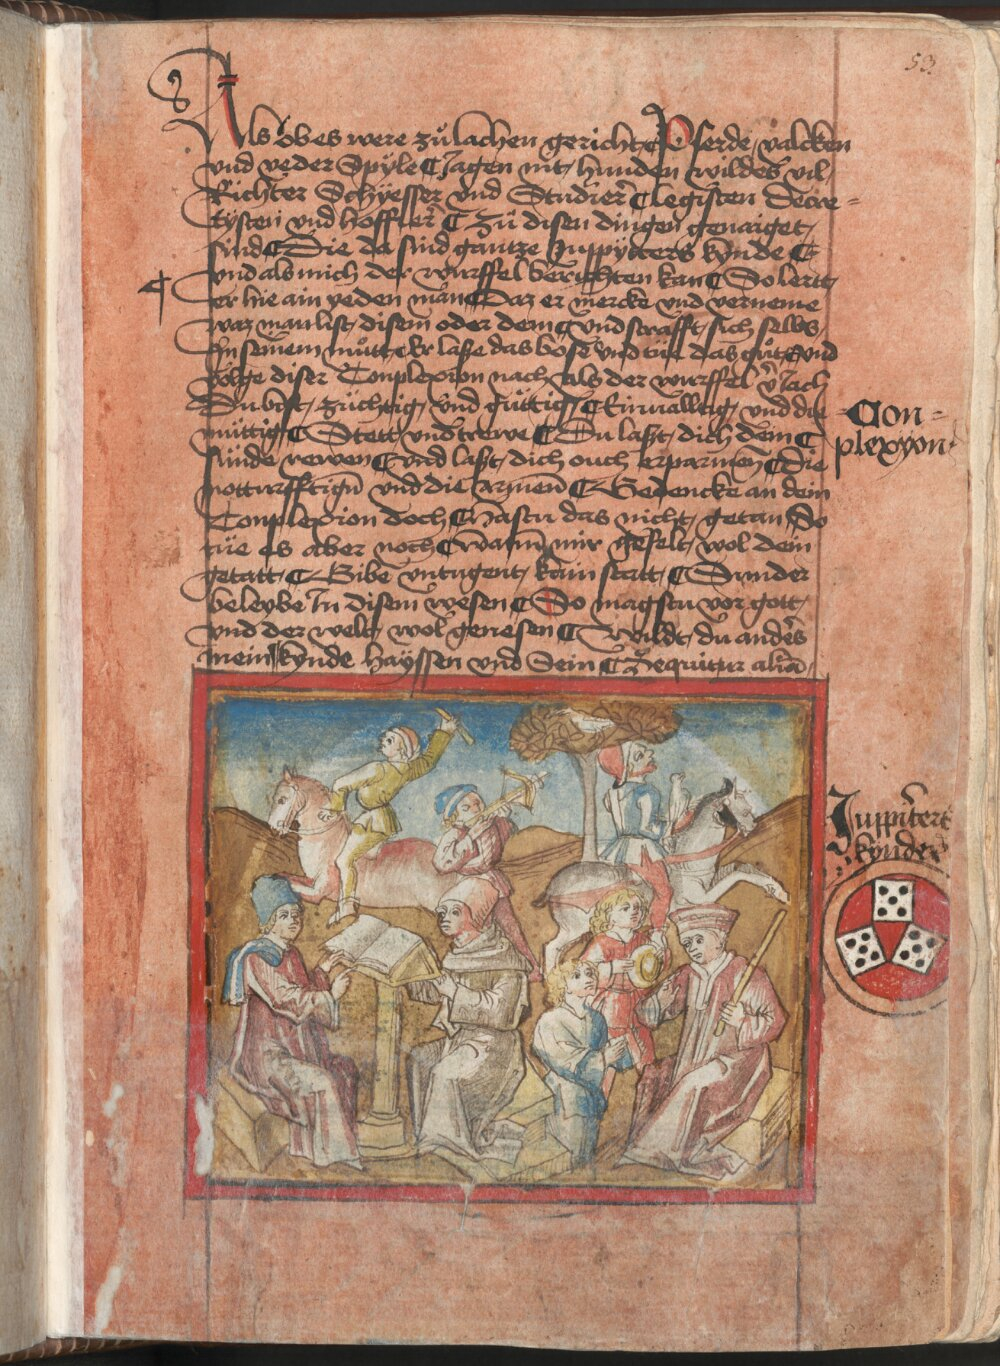 53.
Als ob es were zů lachen gericht Pferde valcken
und veder Spyle Jagen mit hunden wildes vil
Richter Schyesser und Studirer legisten Decre=
tysten und hoffier Zů disen dingen genaiget
sind Die da sind gantze Juppytters kynde
und als mich der wurffel berichten kan So lertt
er hie ain yeden man Daz er mercke und verneme
waz man list disem oder dem und straff sich selbs
In seinem můtt Er lasse das böse und tüe das gůte und
volge diser Conplexion nach als der wurffel
Du bist züchtig und güttig Einvalltig und die
müttig Stett und trewe Du last dich dein
sünde rewen und last dich ouch erparmen die
notturfftigen und die armen Gedencke an dein
Conplexion doch Hastu das nicht getan So
tüe es aber noch wann mir gefelt wol dein
getatt Gibe untugent kain statt Sunder
beleybe In disem wesen So magstu vor gott
und der welt wol genesen Wildt du anders
mein kynde hayssen und Sein Sequitur alia
Con=
plexyon
Juppiters
kynder